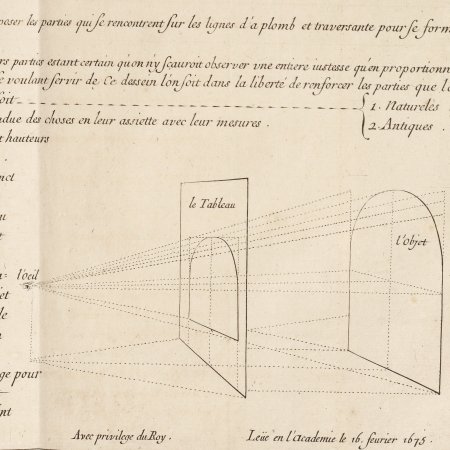 poser les parties qui se rencontrent sur les lignes d'a plomb et traversante pour se form
rs parties estant certain qu'on ny scauroit observer vne entiere iustesse qu'en proportionn
e voulant servir de. Ce dessein l'on soit dans la liberté de renforcer les parties que l'o
soit
1. Natureles
due des choses en leur assiette avec leur mesures .
2. Antiques .
t hauteurs
nct
le Tableau
u
t
l'objet
l'oeil
et
de
n
ge pour
nt
Avec privilege du Roy .
Leüe en l'academie le 16. feurier 1675